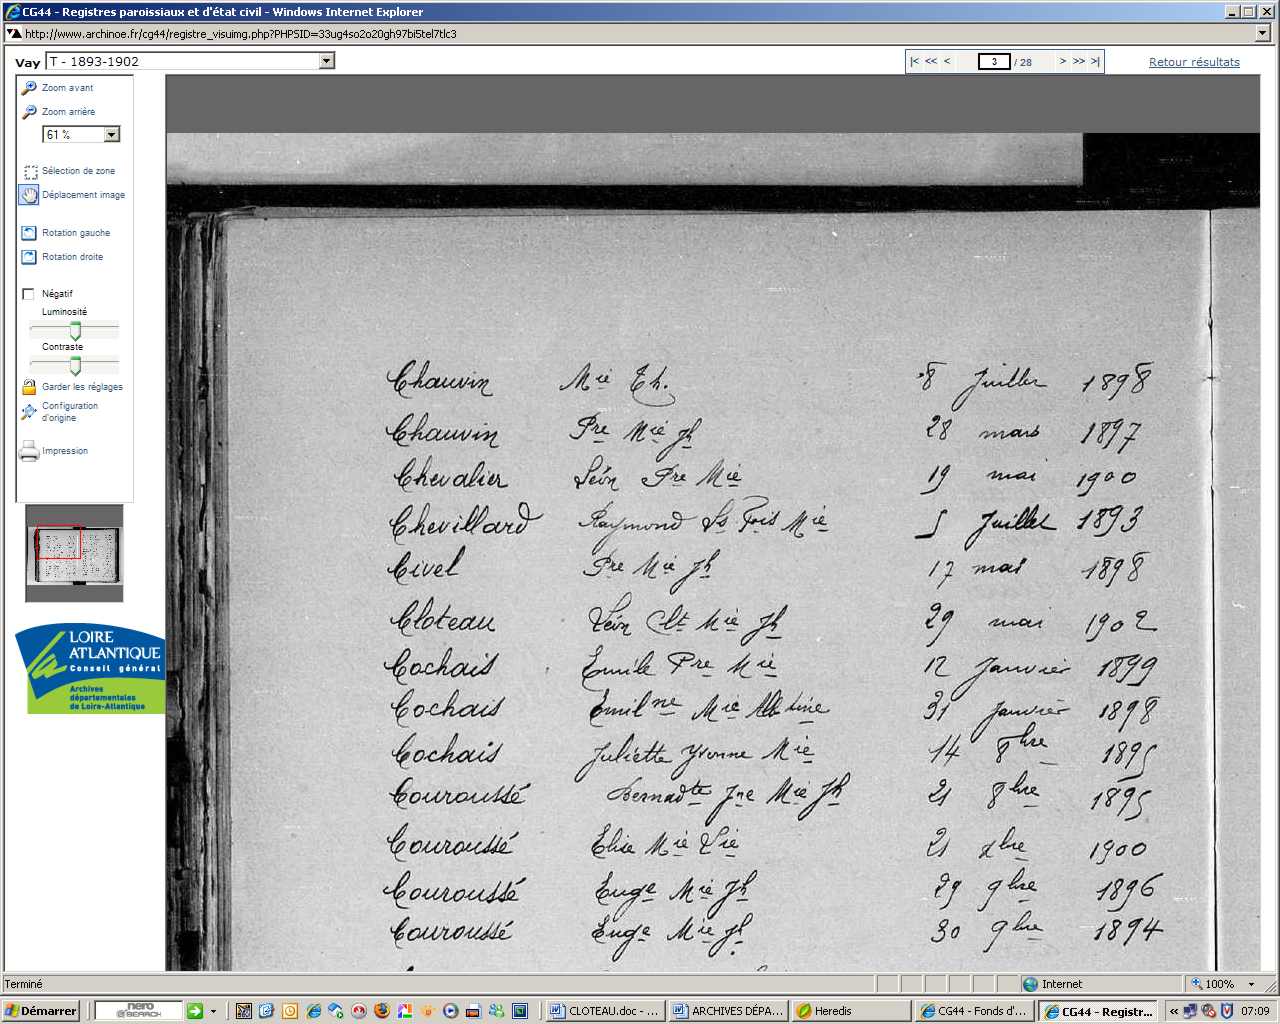 CG44 - Registres paroissiaux et d'état civil - Windows Internet Explorer
http://www.archinoe.fr/cg44/registre_visuimg.php?PHPSID=33ug4so2o20gh97bi5tel7tlc3
Vay T - 1893-1902 |< << < 3 / 28 > >> >| Retour résultats
Zoom avant
Zoom arrière
61 %
Sélection de zone
Déplacement image
Rotation gauche
Rotation droite
Négatif
Luminosité
Contraste
Garder les réglages
Configuration
d'origine
Impression
LOIRE
ATLANTIQUE
Conseil général
Archives
départementales
de Loire-Atlantique
Chauvin Mie Th. 8 Juillet 1898
Chauvin Pre Mie Jh 28 mars 1897
Chevalier Léon Pre Mie 19 mai 1900
Chevillard Raymond Ls Frois Mie 5 Juillet 1893
Civel Pre Mie Jh 17 mai 1898
Cloteau Léon Clt Mie Jh 29 mai 1902
Cochais Emile Pre Mie 12 Janvier 1899
Cochais Emilne Mie Albtine 31 Janvier 1898
Cochais Juliette Yvonne Mie 14 8bre 1895
Couroussé Bernadte Jne Mie Jh 21 8bre 1895
Couroussé Elise Mie 21 xbre 1900
Couroussé Euge Mie Jh 29 9bre 1896
Couroussé Euge Mie Jh 30 9bre 1894
Terminé Internet 100%
Démarrer nero SEARCH CLOTEAU.doc - ... ARCHIVES DÉPA... Heredis CG44 - Fonds d'... CG44 - Registr... « 07:09